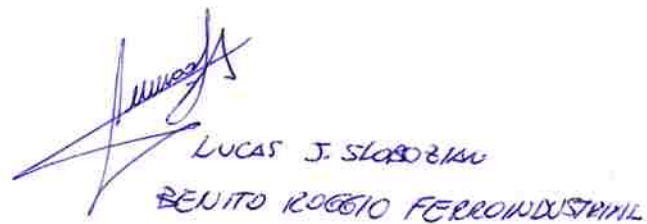 LUCAS J. SLOBOZIAN
BENITO ROGGIO FERROINDUSTRIAL